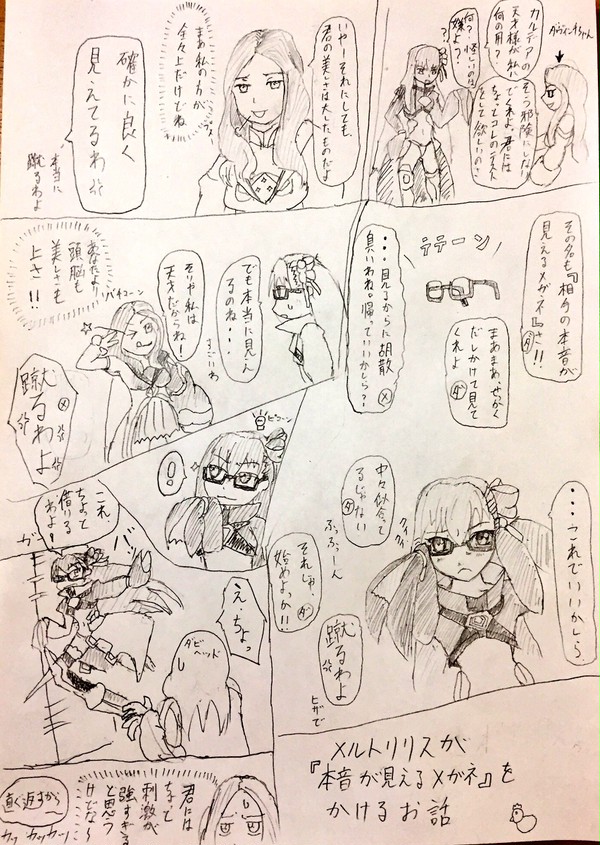 ダヴィンチちゃん
カルデアの
天才様が私に
何の用？
そう邪険にしない
でくれよ。君には
ちょっとコレのテスト
をして欲しいのさ
何？怪しいのは
嫌よ？
いやーそれにしても、
君の美しさは大したものだよ
まあ私の方が
余々上だけどね
プメ
確かに良く
見えてるわ
本当に
蹴るわよ
その名も『相手の本音が
見えるメガネ』さ!!
ダ
テテーン
・・・見るからに胡散
臭いわね。帰っていいかしら？
メ
まあまあ、せっかく
だしかけて見て
くれよ
ダ
・・・これでいいかしら
クイクイ
中々似合って
るじゃない
ダ
ぷぷっーん
それじゃ、
始めようか!!
ダ
蹴るわよ
ヒザで
でも本当に見えて
るのね・・
すごいわ
そりゃ私は
天才だからね！
バチコーン
君だより
頭脳も
美しさも
上さ!!
メ
蹴る
わよ
ピコーン
！
これ、
ちょっと
借りる
わよ！
バッ
ガ
え、ちょっ
ダビ
ヘッド
君には
ちょっと
刺激が
強すぎる
と思う
けどなら
直ぐ返すから
カッ カッカッ
メルトリリスが
『本音が見えるメガネ』を
かけるお話